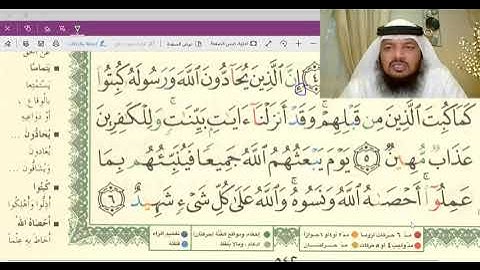 إِنَّ ٱلَّذِينَ يُحَآدُّونَ ٱللَّهَ وَرَسُولَهُۥ كُبِتُوا۟
كَمَا كُبِتَ ٱلَّذِينَ مِن قَبْلِهِمْ ۚ وَقَدْ أَنزَلْنَآ ءَايَٰتٍۭ بَيِّنَٰتٍ ۚ وَلِلْكَٰفِرِينَ
عَذَابٌ مُّهِينٌ ٥ يَوْمَ يَبْعَثُهُمُ ٱللَّهُ جَمِيعًا فَيُنَبِّئُهُم بِمَا
عَمِلُوٓا۟ ۚ أَحْصَىٰهُ ٱللَّهُ وَنَسُوهُ ۚ وَٱللَّهُ عَلَىٰ كُلِّ شَىْءٍ شَهِيدٌ ٦
يَتَمَاسَّا
يَسْتَمْتِعَا
بالوِقَاعِ
أو دَوَاعِيهِ
يُحَادُّونَ
يُعَادُونَ
وَيُشَاقُّونَ
كُبِتُوا
أُذِلُّوا وَأُهْلِكُوا
أَحْصَاهُ اللَّهُ
أَحَاطَ بِهِ عِلْمًا
تفخيم الراء
قلقلة
٥٤٢